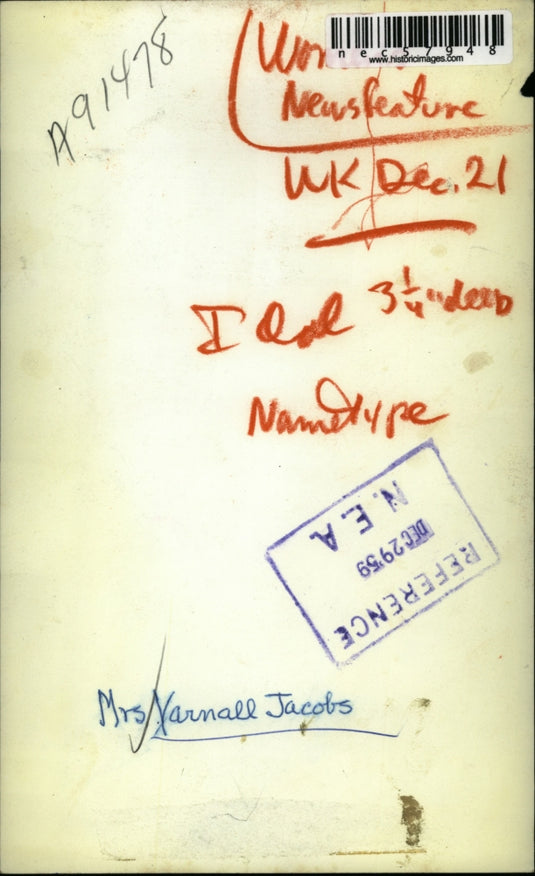 A91478
nec57948
www.historicimages.com
Newsfeature
WK Dec. 21
I Col 3 1/4" deep
Name type
REFERENCE
DEC 29 '59
N.E.A
Mrs Yarnall Jacobs